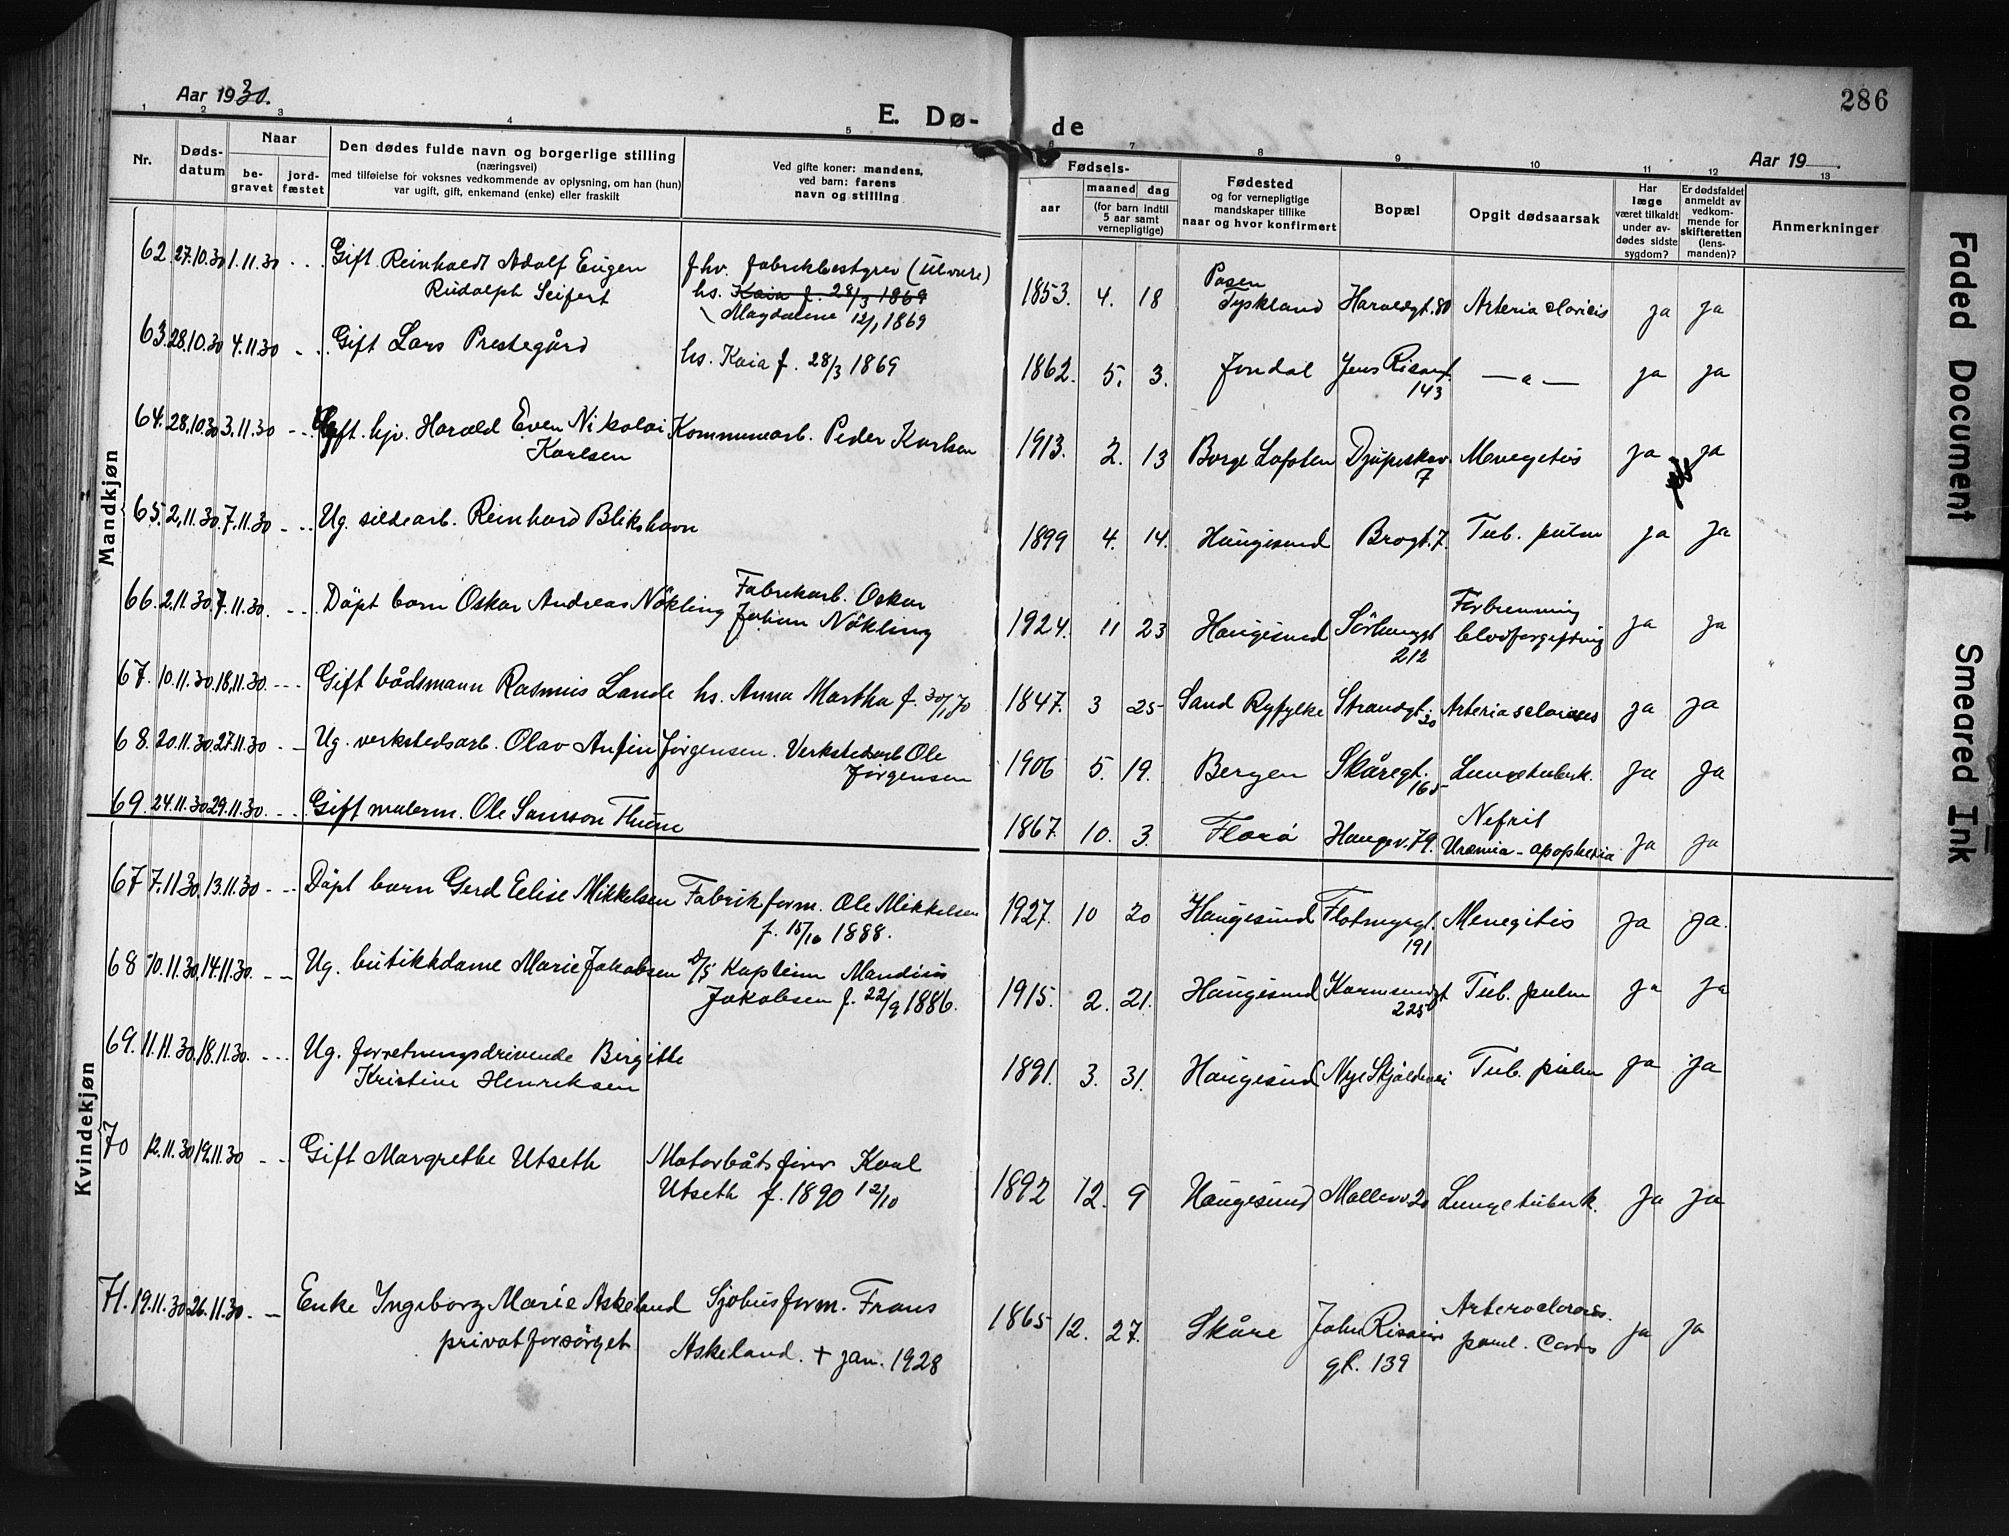 Aar 1930.
E. Dø-
de
286
Aar 19
1 2 3 4 5 6 7 8 9 10 11 12 13
Nr.
Døds-
datum
Naar
be-
gravet
jord-
fæstet
Den dødes fulde navn og borgerlige stilling
(næringsvei)
med tilføielse for voksnes vedkommende av oplysning, om han (hun)
var ugift, gift, enkemand (enke) eller fraskilt
Ved gifte koner: mandens,
ved barn: farens
navn og stilling
Fødsels-
aar
maaned dag
(for barn indtil
5 aar samt
vernepligtige)
Fødested
og for vernepligtige
mandskaper tillike
naar og hvor konfirmert
Bopæl
Opgit dødsaarsak
Har
læge
været tilkaldt
under av-
dødes sidste
sygdom?
Er dødsfaldet
anmeldt av
vedkom-
mende for
skifteretten
(lens-
manden)?
Anmerkninger
Mandkjøn
62. 27.10.30 1.11.30 Gift Reinholdt Adolf Eugen
Rudolph Seifert
fhv. fabrikbestyrer
hs. Kaia f. 28/3 1869
Magdalene 12/1 1869
1853. 4. 18 Posen
Tyskland Haraldgt. 80 ja ja
63. 28.10.30 4.11.30 Gift Lars Prestegård hs. Kaia f. 28/3 1869
1862. 5. 3. Jondal 143 — " — ja ja
64. 28.10.30 3.11.30 Harald Even Nikolai
Karlsen
Kommunearb. Peder Karlsen
1913. 2. 13 Borge Lofoten 7 ja ja
65. 2.11.30. 7.11.30 Ug. sildearb. Reinhard Blikshavn
1899 4. 14. Haugesund Brogt. 7. Tub. pulm ja ja
66. 2.11.30. 7.11.30. Döpt barn Oskar Andreas Nökling
Fabrikarb. Oskar
Johan Nökling
1924. 11 23 Haugesund 212
Forbrenning
blodforgiftnig ja ja
67. 10.11.30. 18.11.30. Gift bådsmann Rasmus Lande hs. Anna Martha f. 30/1 70
1847. 3 25 Sand Ryfylke Strandgt. 30 ja ja
68. 20.11.30. 27.11.30 Ug. verkstedsarb. Olav Anfin Jörgensen. Verkstedsarb Ole
Jörgensen
1906 5. 19. Bergen Skåregt.
165 Lungetuberk. ja ja
69. 24.11.30 29.11.30. Gift malerm. Ole Samson Thune
1867. 10. 3. Florö Haugev. 79. Nefrit
Uræmia - ja ja
Kvindekjøn
67 7.11.30. 13.11.30 Döpt barn Gerd Elise Mikkelsen Fabrikform. Ole Mikkelsen
f. 15/10 1888.
1927. 10 20 Haugesund Flotmyrgt.
191 Menegitis ja ja.
68 10.11.30. 14.11.30. Ug. butikkdame Marie Jakobsen D/S Kaptein Mandius
Jakobsen f. 22/9 1886.
1915. 2. 21. Haugesund Karmsundgt
225 Tub. pulm ja ja
69. 11.11.30. 18.11.30. Ug. forretningsdrivende Birgitte
Kristine Henriksen
1891. 3. 31. Haugesund Nye Skjoldevei Tub. pulm ja ja
70 12.11.30 19.11.30 Gift Margrethe Utseth Motorbåtsförer Karl
Utseth f. 1890 12/10
1892 12. 9 Haugesund Møllerv. 20 Lungetuberk. ja ja
71. 19.11.30 26.11.30. Enke Ingeborg Marie Askeland
privat forsörget
Sjøhusform. Frans
Askeland. + jan. 1928
1865 12. 27. Skåre 139 ja ja
Faded Document
Smeared Ink